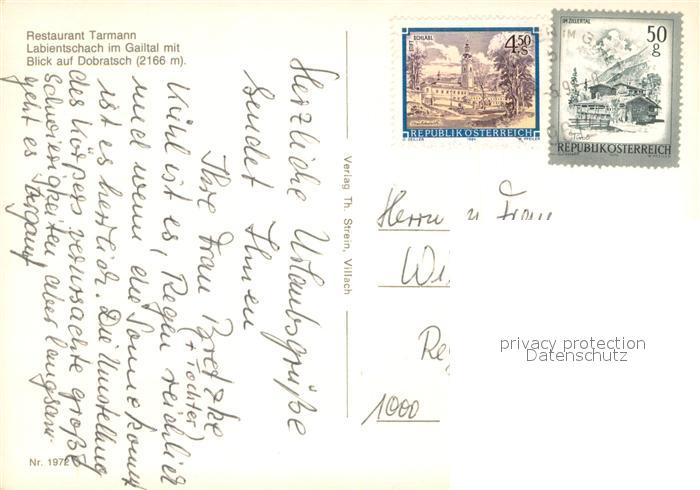 Restaurant Tarmann
Labientschach im Gailtal mit
Blick auf Dobratsch (2166 m).
Herzliche Urlaubsgrüße
sendet Ihnen
Ihre Frau Bretzke
(+ Tochter)
Kühl ist es, Regen reichlich
und wenn die Sonne kommt
ist es herrlich. Die Umstellung
des Körpers verursachte große
Schwierigkeiten, aber langsam
geht es bergauf
Nr. 1972
Verlag Th. Strein, Villach
STIFT SCHLÄGL
4.50 S
REPUBLIK ÖSTERREICH
IM ZILLERTAL
50 g
Tirol
REPUBLIK ÖSTERREICH
Herrn u Frau
1000
privacy protection
Datenschutz